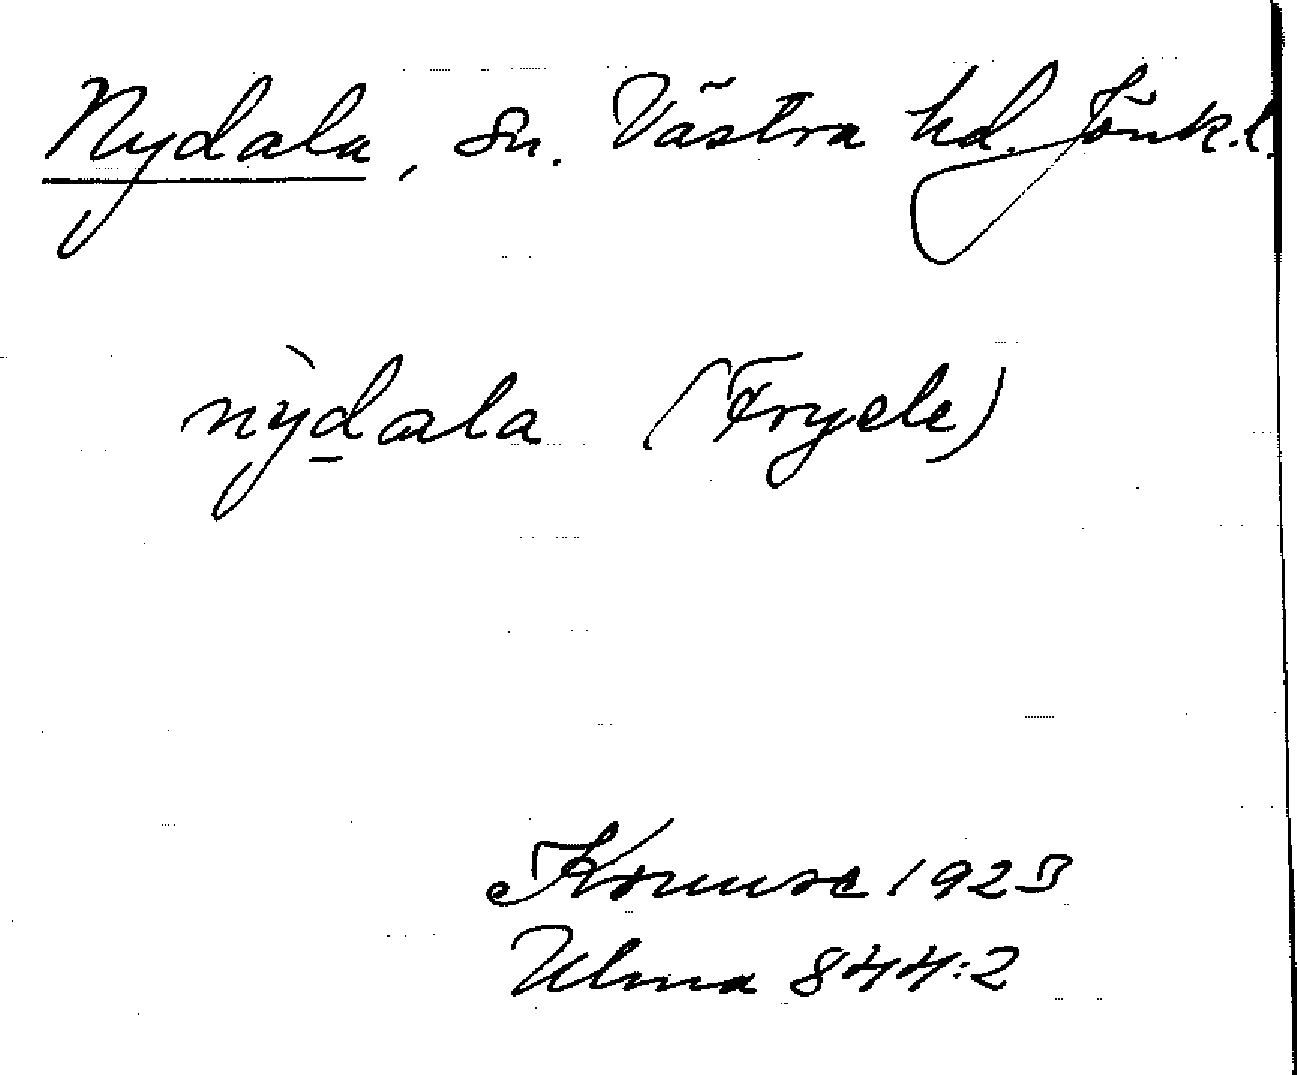 Nydala, sn. Västra hd. Jönk.l.
nỳdala (Fryele)
Kruuse 1923
Ulma 844:2